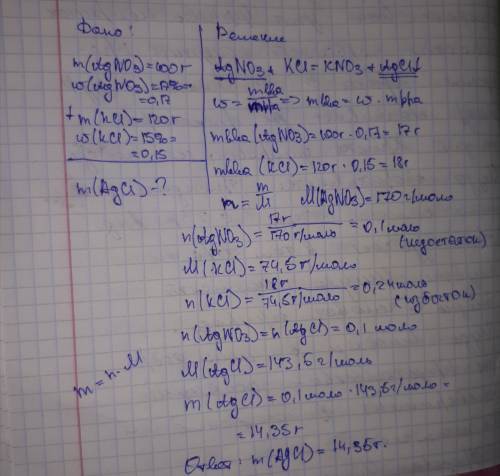 Дано:
m(AgNO3)=100г
w(AgNO3)=17%=
=0,17
+ m(KCl)=120г
w(KCl)=15%=
=0,15
m(AgCl)-?
Решение
AgNO3 + KCl = KNO3 + AgCl↓
w = mв-ва/mр-ра => mв-ва = w · mр-ра
mв-ва (AgNO3)=100г · 0,17 = 17г
mв-ва (KCl)=120г · 0,15 = 18г
n = m/M M(AgNO3)=170 г/моль
n(AgNO3) = 17г/170 г/моль = 0,1 моль
(недостаток)
M(KCl) = 74,5 г/моль
n(KCl) = 18г/74,5 г/моль = 0,24 моль
(избыток)
n(AgNO3) = n(AgCl) = 0,1 моль
M(AgCl) = 143,5 г/моль
m = n · M
m(AgCl) = 0,1 моль · 143,5 г/моль =
= 14,35г
Ответ: m(AgCl) = 14,35г.